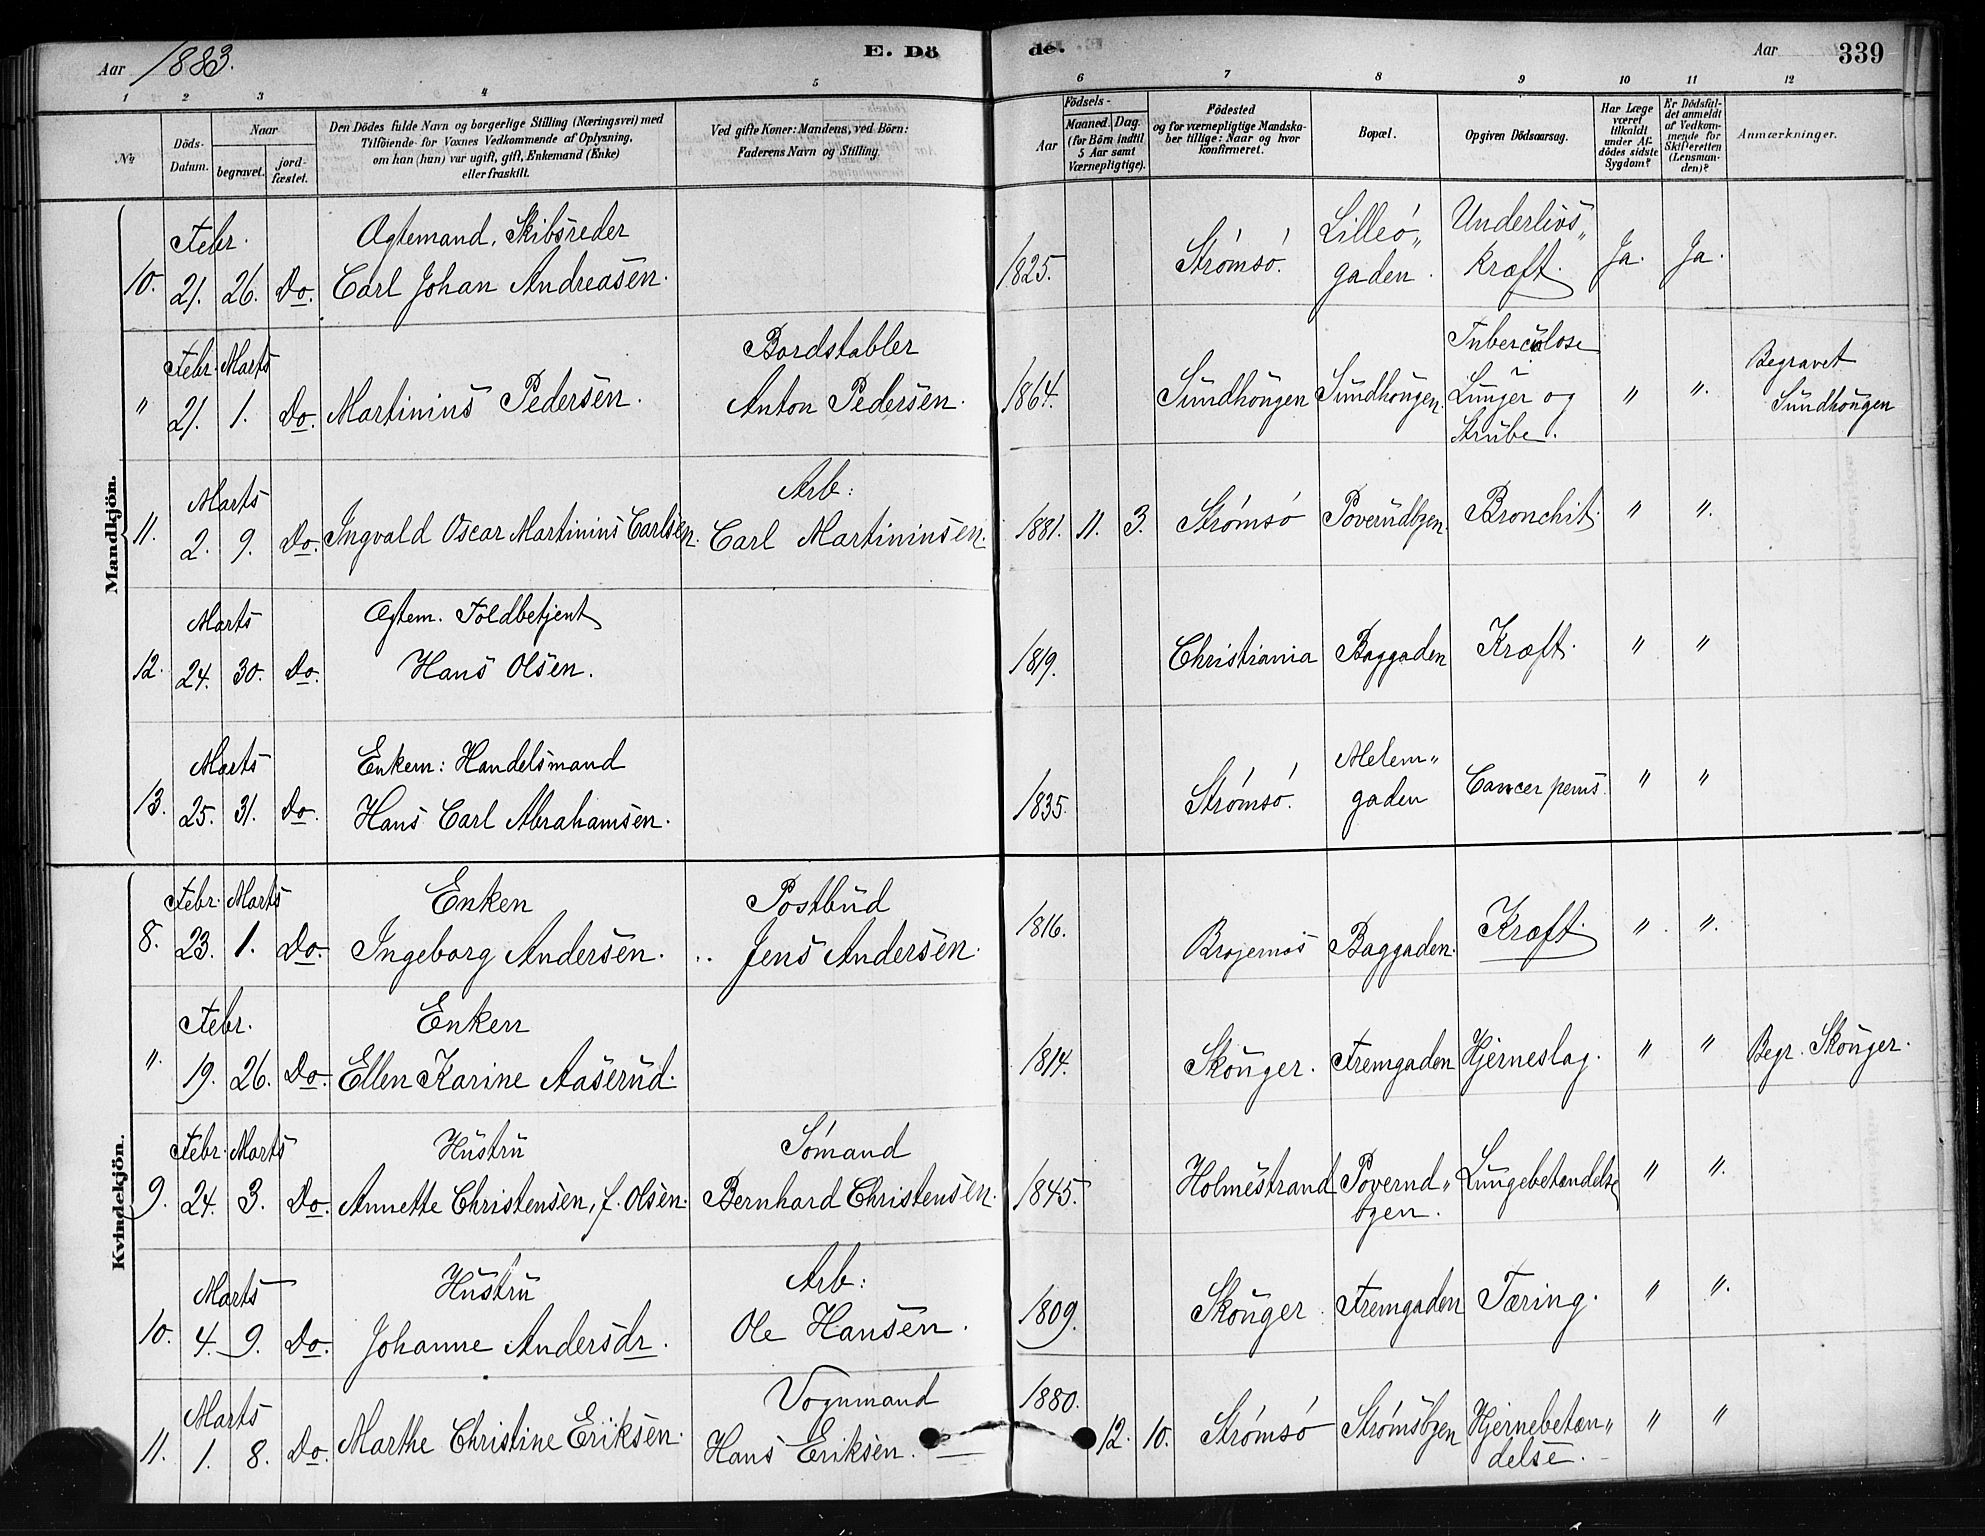 Aar 1883.
E. Dö
de.
Aar
339
1
2
3
4
5
6
7
8
9
10
11
12
No
Döds-
Datum.
Naar
begravet.
jord-
fæstet.
Den Dödes fulde Navn og borgerlige Stilling (Næringsvei) med
Tilföiende for Voxnes Vedkommende af Oplysning,
om han (hun) var ugift, gift, Enkemand (Enke)
eller fraskilt.
Ved gifte Koner: Mandens, ved Börn:
Faderens Navn og Stilling
Födsels-
Aar
Maaned.
Dag.
(for Börn indtil
5 Aar samt
Værnepligtige).
Födested
og for værnepligtige Mandska-
ber tillige: Naar og hvor
konfirmeret.
Bopæl.
Opgiven Dödsaarsag.
Har Læge
været
tilkaldt
under Af-
dödes sidste
Sygdom?
Er Dödsfal-
det anmeldt
af Vedkom-
mende for
Skifteretten
(Lensman-
den)?
Anmærkninger.
Mandkjön.
Febr.
Ægtemand, Skibsreder
Lilleö„
Underlivs„
10. 21. 26. Do. Carl Johan Andreasen. 1825. Strømsø. gaden. kræft. Ja. Ja.
Febr. Marts
Bordstabler
Tuberculose
Begravet
" 21. 1. Do. Martinius Pedersen. Anton Pedersen. 1864. Sundhougen Sundhougen. Lunger og " ". Sundhougen
Strube.
Marts
Arb:
11. 2. 9. Do. Ingvald Oscar Martinius Carlsen. Carl Martininsen. 1881. 11. 3. Strømsø Poverudbgen. Bronchit. " ".
Marts
Ægtem. Toldbetjent
12. 24. 30. Do. Hans Olsen. 1819. Christiania Baggaden Kræft. " "
Marts
Enkem: Handelsmand
Melem„
13. 25. 31. Do. Hans Carl Abrahamsen. 1835. Strømsø. gaden Cancer penis. " "
Kvindekjön.
Febr. Marts
Enken
Postbud
8. 23. 1. Do. Ingeborg Andersen. .. Jens Andersen. 1816. Bragernæs Baggaden. Kræft. " ".
Febr.
Enken
". 19. 26. Do. Ellen Karine Aaserud. 1814. Skouger. Fremgaden Hjerneslag. " " Begr. Skouger.
Febr. Marts
Hustru
Sømand
9. 24. 3. Do. Annette Christensen, f. Olsen. Bernhard Christensen. 1845. Holmestrand Poverud„ Lungebetændelse " ".
bgen.
Marts
Hustru
Arb:
10. 4. 9. Do. Johanne Andersdr. Ole Hansen. 1809. Skouger Fremgaden Tæring. " ".
Marts
Vognmand
11. 1. 8. Do. Marthe Christine Eriksen. Hans Eriksen. 1880. 12. 10. Strømsø Strømsbgen Hjernebetæn„ " "
delse.